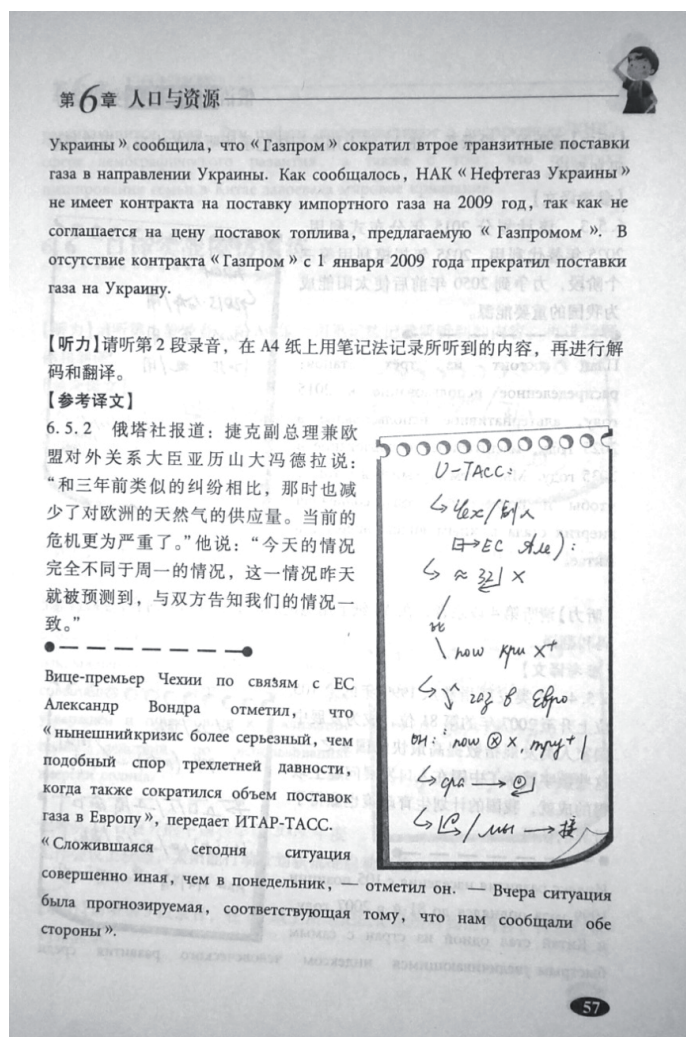 第6章 人口与资源
Украины» сообщила, что «Газпром» сократил втрое транзитные поставки
газа в направлении Украины. Как сообщалось, НАК «Нефтегаз Украины»
не имеет контракта на поставку импортного газа на 2009 год, так как не
соглашается на цену поставок топлива, предлагаемую «Газпромом». В
отсутствие контракта «Газпром» с 1 января 2009 года прекратил поставки
газа на Украину.
【听力】请听第2段录音，在A4纸上用笔记法记录所听到的内容，再进行解
码和翻译。
【参考译文】
6.5.2 俄塔社报道：捷克副总理兼欧
盟对外关系大臣亚历山大冯德拉说：
“和三年前类似的纠纷相比，那时也减
少了对欧洲的天然气的供应量。当前的
危机更为严重了。”他说：“今天的情况
完全不同于周一的情况，这一情况昨天
就被预测到，与双方告知我们的情况一
致。”
Вице-премьер Чехии по связям с ЕС
Александр Вондра отметил, что
«нынешнийкризис более серьезный, чем
подобный спор трехлетней давности,
когда также сократился объем поставок
газа в Европу», передает ИТАР-ТАСС.
«Сложившаяся сегодня ситуация
совершенно иная, чем в понедельник, — отметил он. — Вчера ситуация
была прогнозируемая, соответствующая тому, что нам сообщали обе
стороны».
И-ТАСС:
Чех/
ЕС Але):
≈ X
now кри X+
газ в Евро
он: now ⊗ X, тру+1
→
/ мы → 接
57